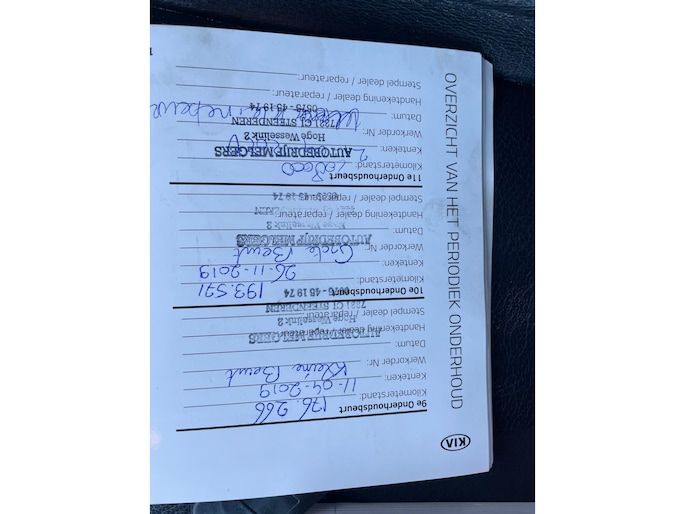 KIA
OVERZICHT VAN HET PERIODIEK ONDERHOUD
9e Onderhoudsbeurt
Kilometerstand: 176.266
Kenteken: 11-04-2019
Werkorder Nr: Kleine Beurt
Datum:
Handtekening dealer / reparateur:
Stempel dealer / reparateur:
AUTOBEDRIJF MELGERS
Hoge Wesselink 2
7221 CJ STEENDEREN
0575 - 45 19 74
10e Onderhoudsbeurt
Kilometerstand: 193.521
Kenteken: 26-11-2019
Werkorder Nr: Grote Beurt
Datum:
Handtekening dealer / reparateur:
Stempel dealer / reparateur:
AUTOBEDRIJF MELGERS
Hoge Wesselink 2
7221 CJ STEENDEREN
0575 - 45 19 74
11e Onderhoudsbeurt
Kilometerstand:
Kenteken:
Werkorder Nr:
Datum:
Handtekening dealer / reparateur:
Stempel dealer / reparateur:
AUTOBEDRIJF MELGERS
Hoge Wesselink 2
7221 CJ STEENDEREN
0575 - 45 19 74